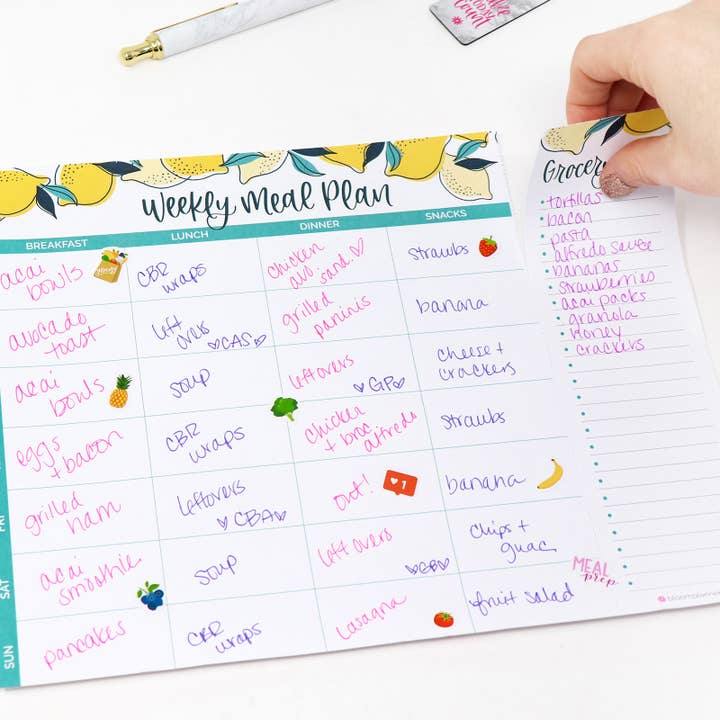 count
Weekly Meal Plan
BREAKFAST
LUNCH
DINNER
SNACKS
acai
bowls
CBR
wraps
chicken
avo
sand. ♡
strawbs
avocado
toast
left
overs
♡CAS♡
grilled
paninis
banana
acai
bowls
soup
leftovers
♡GP♡
cheese +
crackers
eggs
+ bacon
CBR
wraps
chicken
+ broc
alfredo
strawbs
FRI
grilled
ham
leftovers
♡CBA♡
out!
1
banana
SAT
acai
smoothie
soup
leftovers
chips +
guac
SUN
pancakes
CBR
wraps
lasagna
fruit salad
MEAL
prep
Grocery
tortillas
bacon
pasta
alfredo sauce
bananas
strawberries
acai packs
granola
honey
crackers
bloomplanner